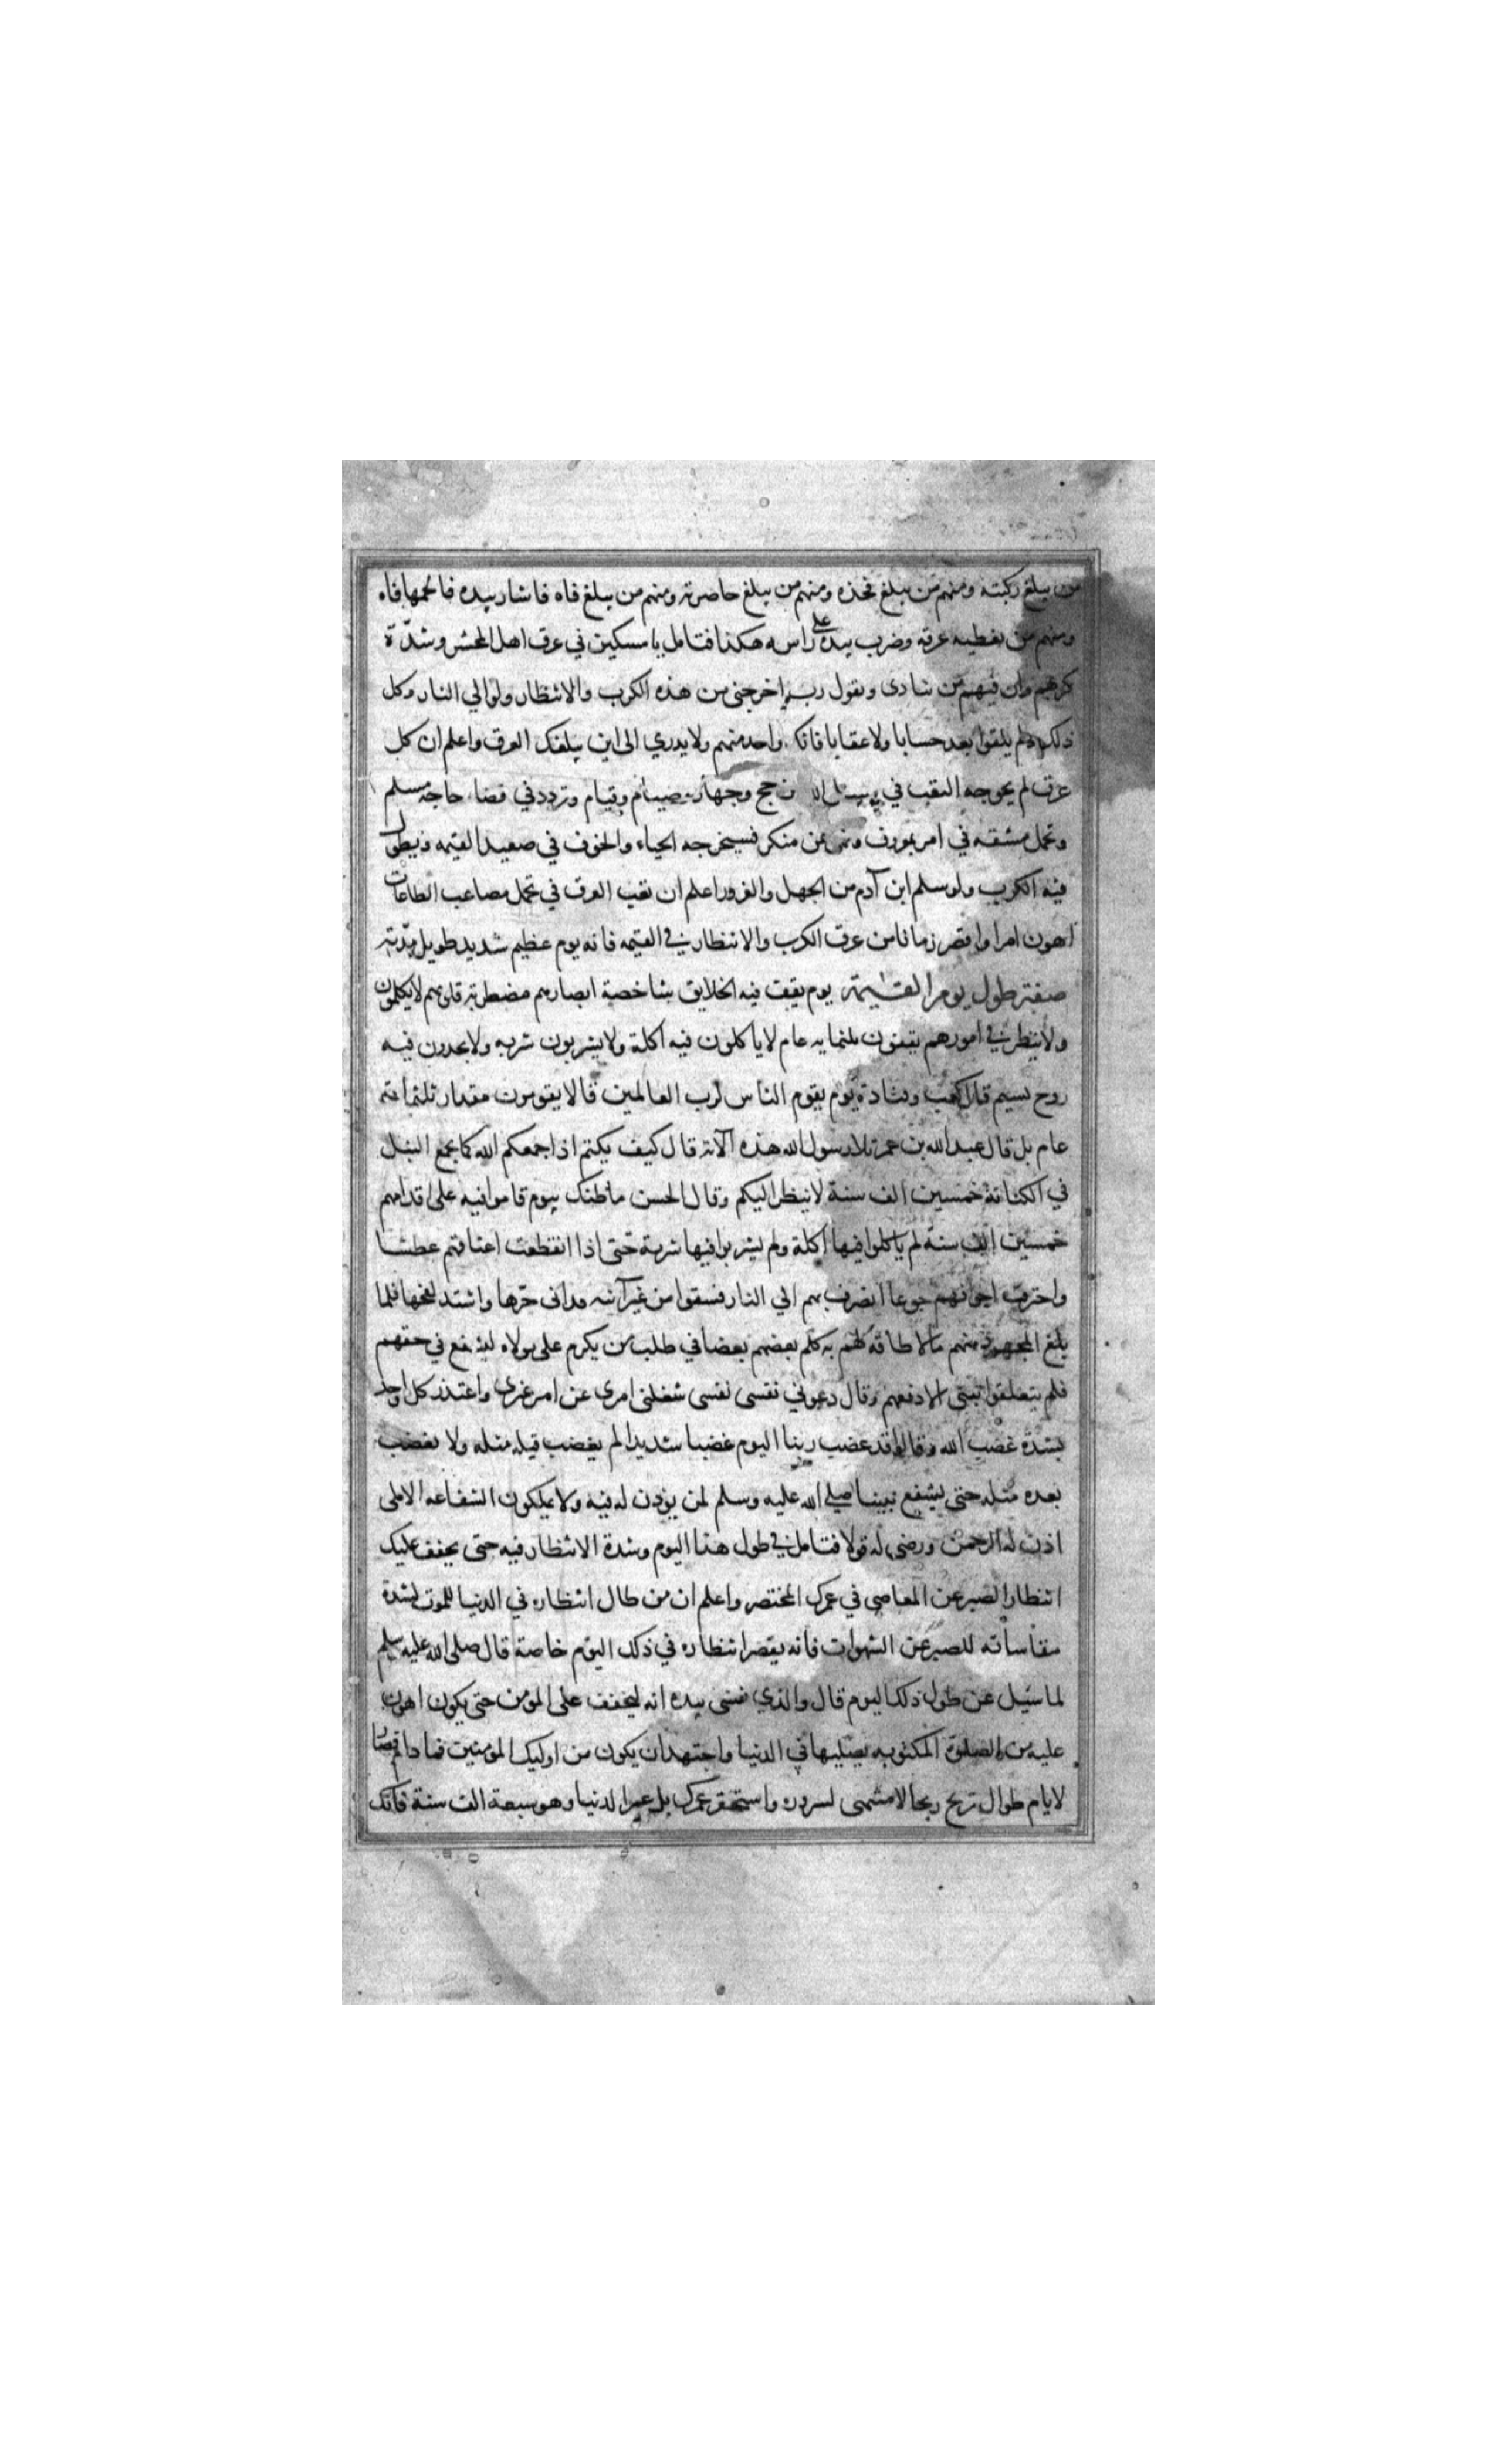 من يبلغ ركبته ومنهم من يبلغ فخذه ومنهم من يبلغ خاصرته ومنهم من يبلغ فاه فاشار بيده فالجمها فاه
ومنهم من يغطيه عرقه وضرب بيده على راسه هكذا فتامل يا مسكين في عرق اهل المحشر وشدّة
كربهم وان فيهم من ينادى ويقول رب اخرجنى من هذه الكرب والانتظار ولو الي النار وكل
ذلك ولم يلقوا بعد حسابا ولا عقابا فانك واحد منهم ولا يدري الى اين يبلغك العرق واعلم ان كل
عرق لم يخرجه التعب في سبيل الله من حج وجهاد وصيام وقيام وتردد في قضاء حاجة مسلم
وتحمل مشقه في امر بمعروف ونهى عن منكر فسيخرجه الحياء والخوف في صعيد القيمه ويطول
فيه الكرب ولو سلم ابن آدم من الجهل والغرور اعلم ان تعب العرق في تحمل مصاعب الطاعات
اهون امرا واقصر زمانا من عرق الكرب والانتظار في القيمه فانه يوم عظيم شديد طويل مدّته
صفة طول يوم القيٰمة يوم يقف فيه الخلايق شاخصة ابصارهم مضطربة قلوبهم لا يكلمون
ولا ينظر في امورهم يقفون ثلثمايه عام لا ياكلون فيه اكلة ولا يشربون شربه ولا يجدون فيه
روح نسيم قال كعب وقتادة يوم يقوم الناس لرب العالمين قالا يقومون مقدار ثلثمائة
عام بل قال عبد الله بن عمر تلا رسول الله هذه الآية قال كيف بكم اذا جمعكم الله كما يجمع النبل
في الكنانة خمسين الف سنة لا ينظر اليكم وقال الحسن ما ظنك بيوم قاموا فيه على اقدامهم
خمسين الف سنة لم ياكلوا فيها اكلة ولم يشربوا فيها شربة حتى اذا انقطعت اعناقهم عطشا
واحترقت اجوافهم جوعا انصرف بهم الي النار فسقوا من عين آنيه قد انى حرّها واشتد لفحها فلما
بلغ المجهود منهم ما لا طاقه لهم به كلم بعضهم بعضا في طلب من يكرم على مولاه ليشفع في حقهم
فلم يتعلقوا بنبى الا دفعهم وقال دعوني نفسى نفسى شغلنى امرى عن امر غيرى واعتذر كل واحد
بشدة غضب الله وقال قد غضب ربنا اليوم غضبا شديدا لم يغضب قبله مثله ولا يغضب
بعده مثله حتى يشفع نبينا صلى الله عليه وسلم لمن يؤذن له فيه ولا يملكون الشفاعه الا لمن
اذن له الرحمن ورضى له قولا فتامل في طول هذا اليوم وشدة الانتظار فيه حتى يخفف عليك
انتظار الصبر عن المعاصي في عمرك المختصر واعلم ان من طال انتظاره في الدنيا للموت لشدة
مقاساته للصبر عن الشهوات فانه يقصر انتظاره في ذلك اليوم خاصة قال صلى الله عليه وسلم
لما سئيل عن طول ذلك اليوم قال والذي نفسى بيده انه ليخفف على المومن حتى يكون اهون
عليه من الصلوة المكتوبه يصليها في الدنيا واجتهد ان يكون من اوليك المومنين فما دام
لايام طوال تربح ربحا لا منتهى لسروره واستحقر عمرك بل عمر الدنيا وهو سبعة الف سنة فانك